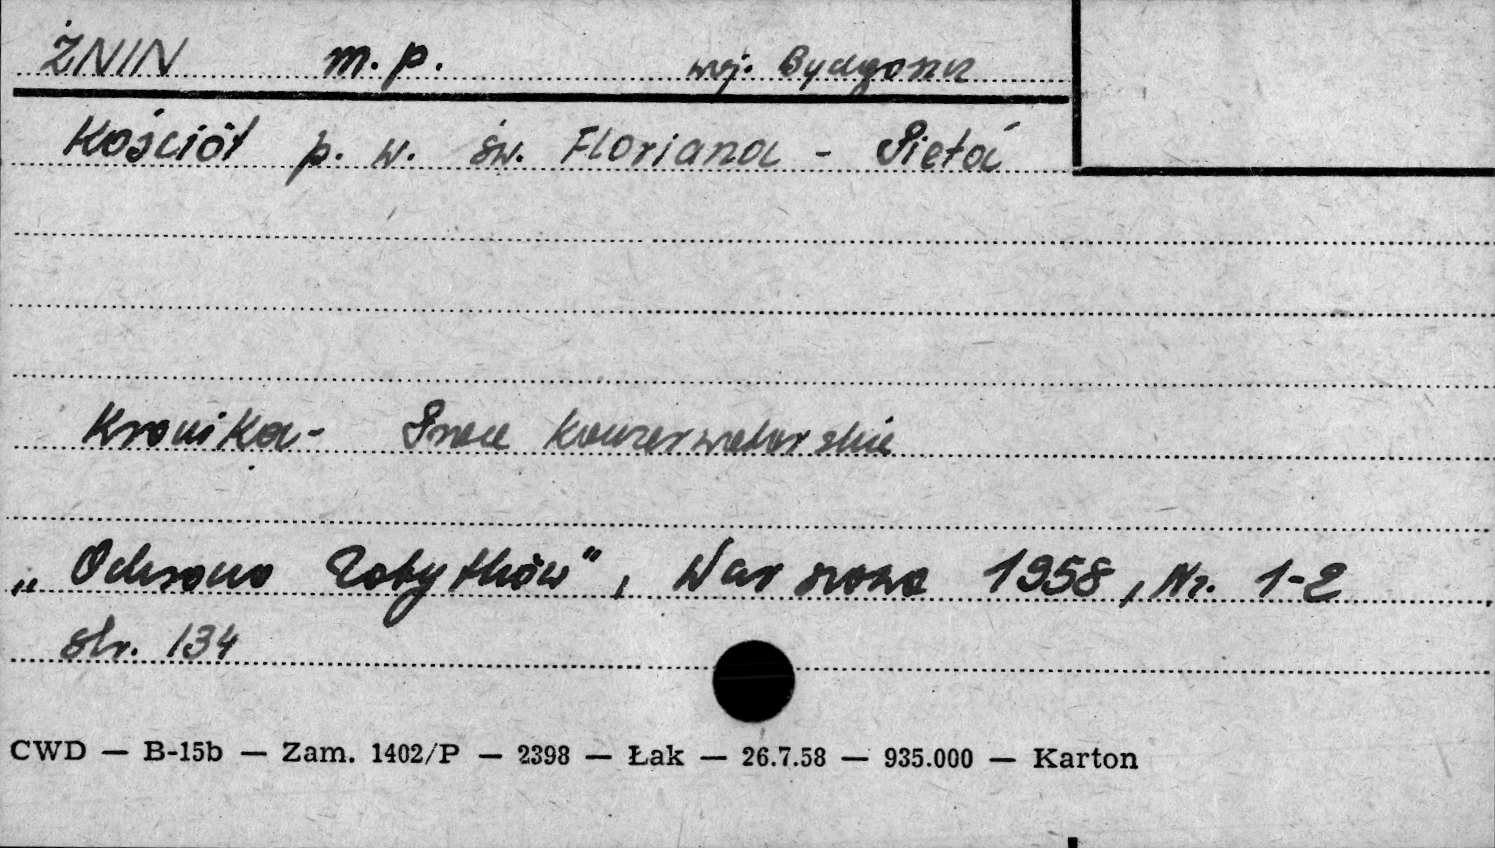 ŻNIN m.p. woj. Bydgoszcz
Kościół p.w. św. Floriana - Pietá
Kronika - Prace konserwatorskie
„Ochrona Zabytków", Warszawa 1958, Nr. 1-2
str. 134
CWD — B-15b — Zam. 1402/P — 2398 — Łak — 26.7.58 — 935.000 — Karton